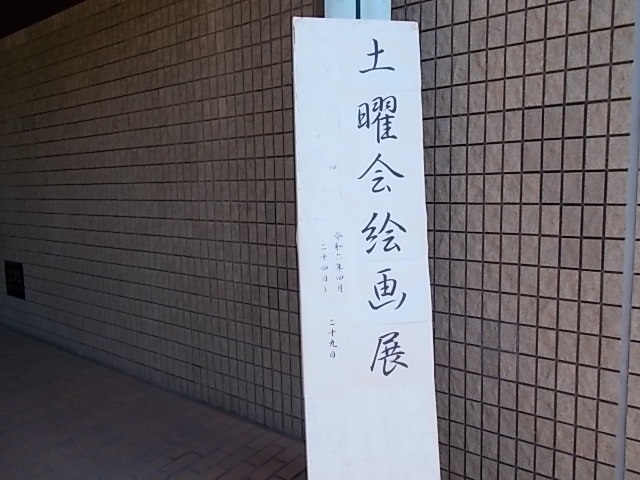 土曜会絵画展
令和六年四月
二十四日〜
二十九日